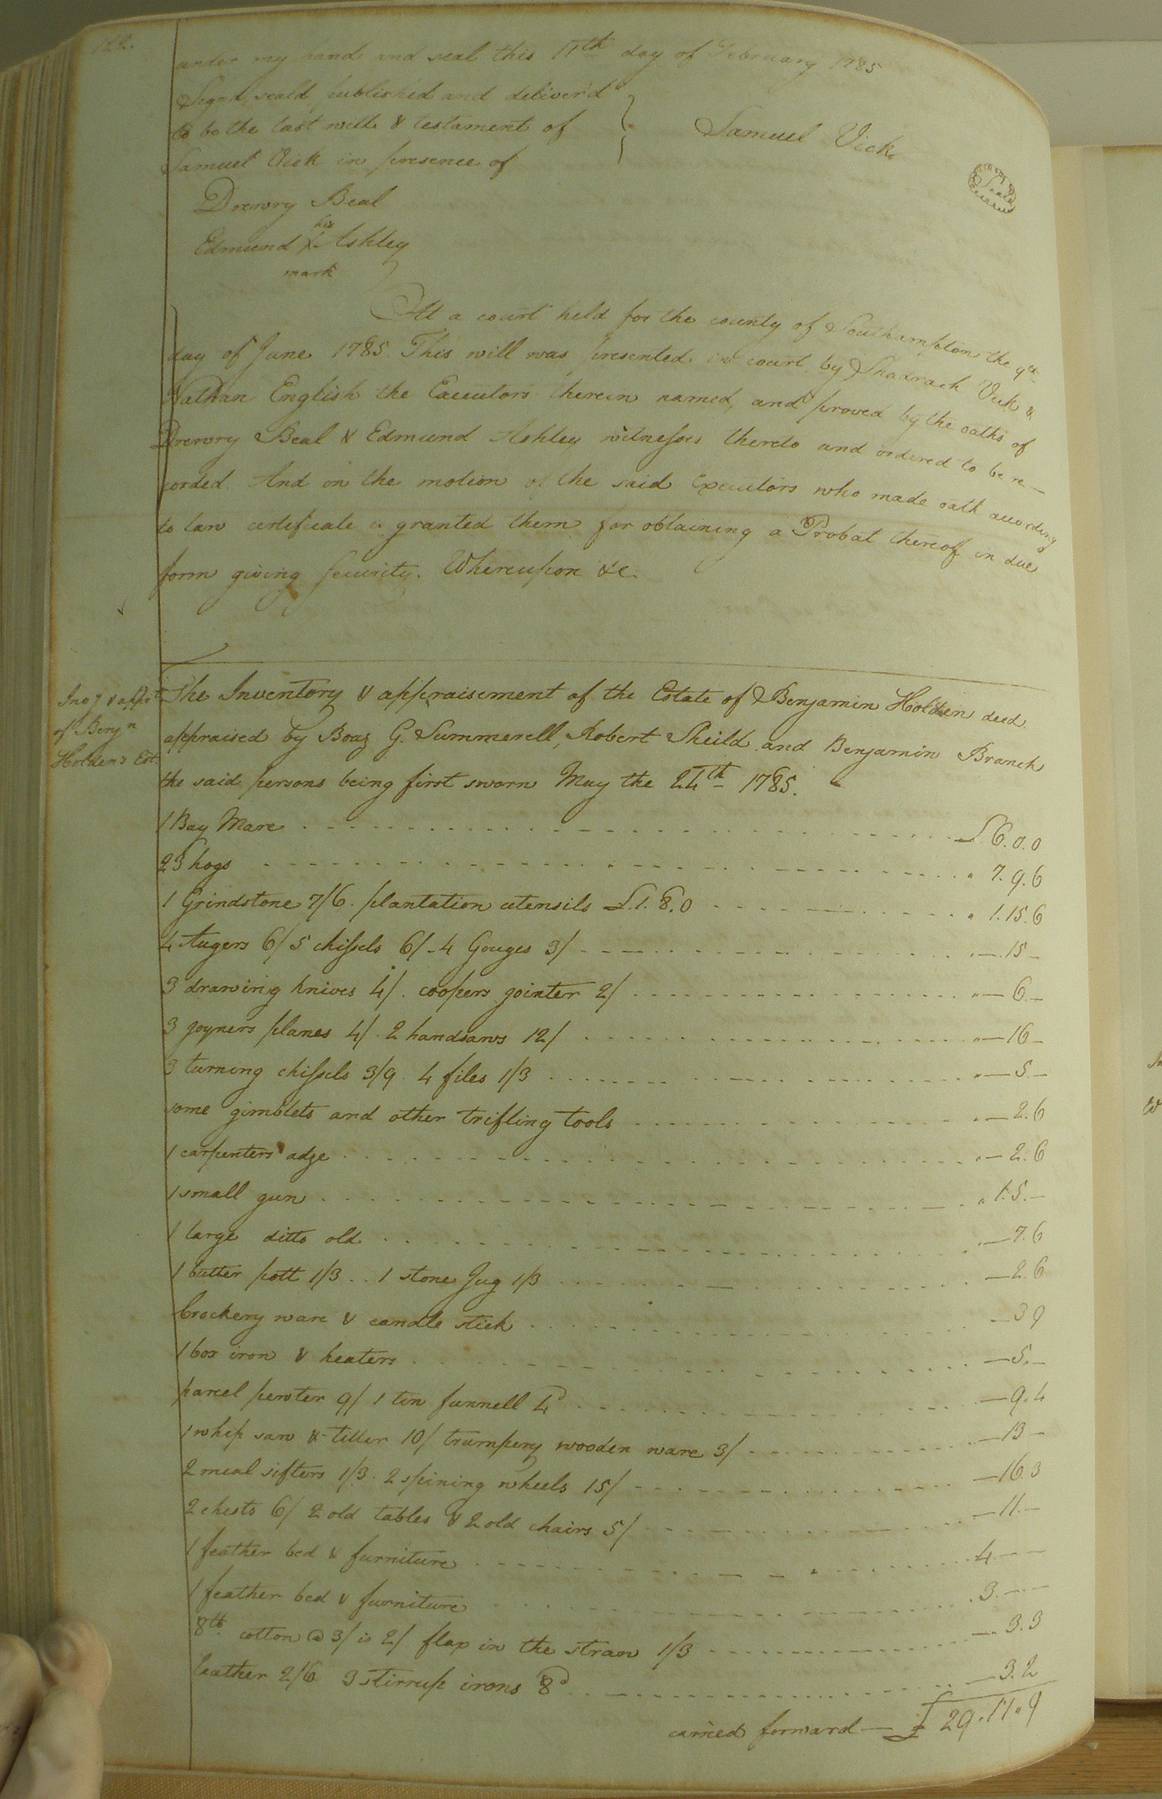 122.
under my hand and seal this 11th day of February 1785
Signd, seald, published and deliver'd
to be the last will & testament of
Samuel Vick
Samuel Vick in presence of
Seal
Drewry Beal
his
Edmund X Ashley
mark
At a court held for the county of Southampton the 9th
day of June 1785. This will was presented in court by Shadrach Vick &
Nathan English the Executors therein named, and proved by the oaths of
Drewry Beal & Edmund Ashley witnesses thereto and ordered to be re-
corded And on the motion of the said Executors who made oath according
to law certificate is granted them for obtaining a Probat thereof in due
form giving security. Whereupon &c.
Invy & appt
of Benjn
Holdens Est.
The Inventory & appraisement of the Estate of Benjamin Holden decd
appraised by Boaz G. Summerell, Robert Sheild and Benjamin Branch
the said persons being first sworn May the 24th 1785.
1 Bay Mare £6.0.0
23 hogs 7.9.6
1 Grindstone 7/6. plantation utensils £.1.8.0 1.15.6
4 Augers 6/ 5 chissels 6/ - 4 Gouges 3/ —15—
3 drawing knives 4/. coopers jointer 2/ —6—
3 joyners planes 4/. 2 handsaws 12/ —16—
3 turning chissels 3/9. 4 files 1/3 —5—
some gimblets and other trifling tools —2.6
1 carpenters adze —2.6
1 small gun 1.5.—
1 large ditto old —7.6
1 butter pott 1/3 .. 1 stone Jug 1/3 —2.6
Crockery ware & candle stick —3 9
1 box iron & heaters —5.—
parcel pewter 9/ 1 tin funnell 4d —9.4
1 whip saw & tiller 10/ trumpery wooden ware 3/ —13—
2 meal sifters 1/3. 2 spining wheels 15/ —16.3
2 chests 6/ 2 old tables & 2 old chairs 5/ —11.—
1 feather bed & furniture 4.——
1 feather bed & furniture 3.——
8lb cotton @ 3/ is 2/ flax in the straw 1/3 —3.3
leather 2/6 3 stirrup irons 8d —3.2
carried forward — £ 29.11.9